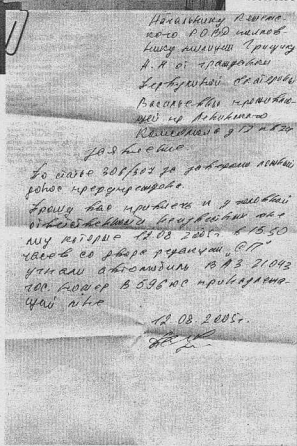 Начальнику
ского РОВД полков
нику милиции Грицику
А.Н от гражданки
Екатерины
Васильевны проживаю
щей пр Ленинского
Комсомола д 17 к 24
заявление.
По статье 306/307 за заведомо ложный
донос предупреждена.
Прошу вас привлечь к уголовной
ответственности неизвестных
которые 12.08.2005г в 15.50
часов со двора редакции "СП"
угнали автомобиль ВАЗ 21093
гос. номер В 596 юс принадлежа
щей мне
12.08.2005г.